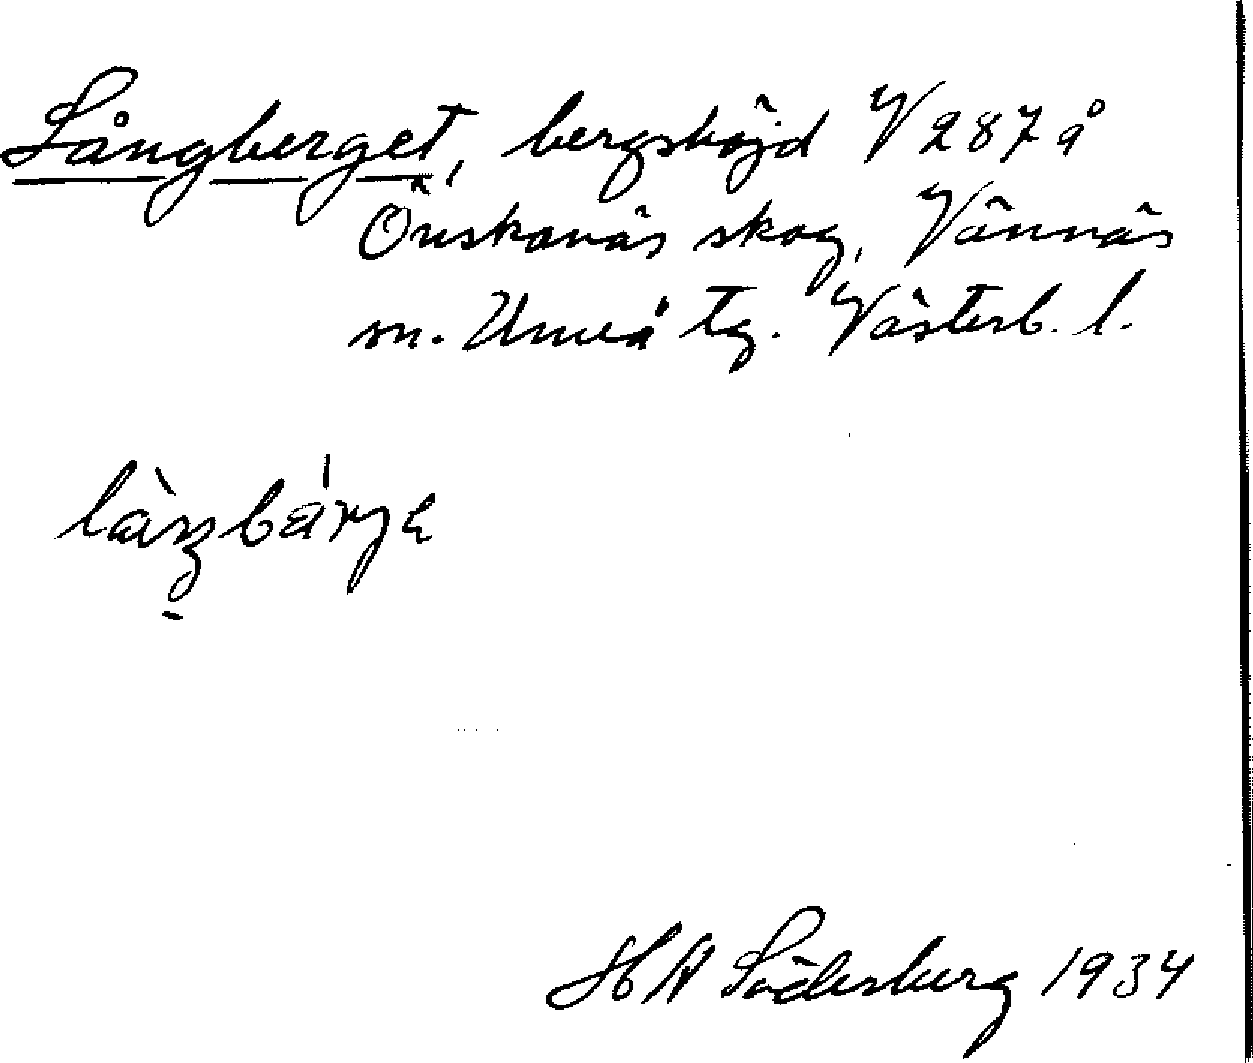 Långberget, bergshöjd V 287 å
Önskanäs skog, Vännäs
sn. Umeå tg. Västerb. l.
H A Söderberg 1934